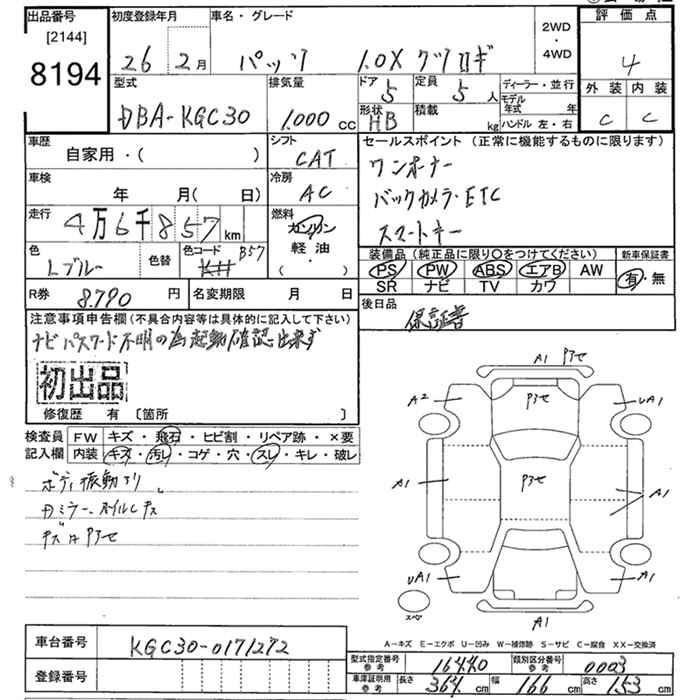 出品番号
[2144]
8194
初度登録年月
26 2月
車名・グレード
パッソ 1.0X クツロギ
2WD
・
4WD
評価点
4
外装 内装
C C
型式
DBA-KGC30
排気量
1.000 cc
ドア 5
定員 5 人
形状 HB
積載 kg
ディーラー・並行
モデル年式 年
ハンドル 左・右
車歴
自家用・( )
シフト
CAT
セールスポイント (正常に機能するものに限ります)
ワンオーナー
バックカメラ・ETC
スマートキー
車検
年 月( 日)
冷房
AC
走行
4万6千857 km
燃料
ガソリン
軽油
・( )
色
Lブルー
色替
色コード B57
装備品 (純正品に限り○をつけてください)
PS PW ABS エアB AW
SR ナビ TV カワ
新車保証書
有・無
R券 8.790 円
名変期限 月 日
後日品
保証書
注意事項申告欄 (不具合内容等は具体的に記入して下さい)
ナビパスワード不明の為起動確認出来ず
初出品
修復歴 有 〔箇所 〕
検査員
記入欄
FW キズ・飛石・ヒビ割・リペア跡・×要
内装 キズ・汚レ・コゲ・穴・スレ・キレ・破レ
ボディ振動より
キズはPアセ
A1 Pアセ
A2
Pアセ
UA1
A1
Pアセ
A1
UA1
A1
スペア
A1
A-キズ E-エクボ U-凹み W-補修跡 S-サビ C-腐食 XX-交換済
車台番号
KGC30-0171272
登録番号
型式指定番号 参考 16440
類別区分番号 参考 0003
車庫証明用 参考
長さ 364 cm 幅 166 cm 高さ 153 cm